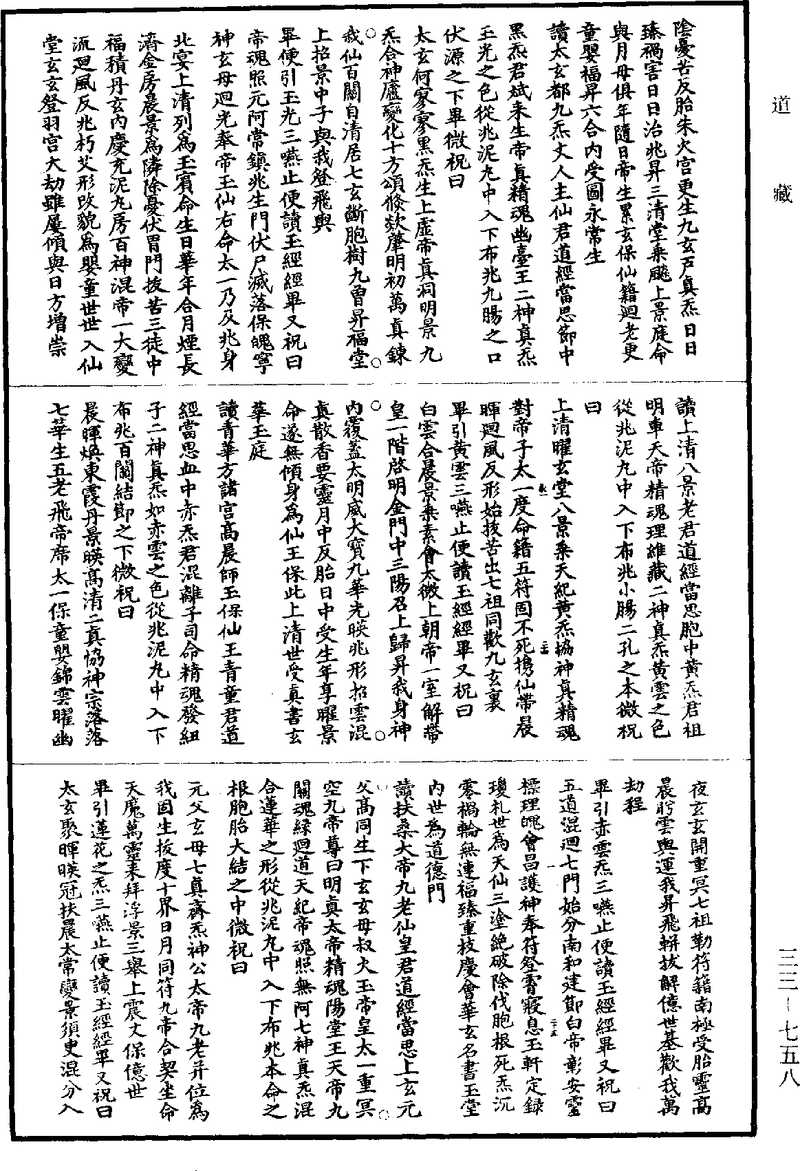 道藏
陰憂苦反胎朱火宮更生九玄戶真炁日日
臻禍害日日治兆昇三清堂乘飈上景庭命
與月母俱年隨日帝生累玄保仙籍廻老更
童嬰福昇六合內受圖永常生
讀太玄都九炁丈人主仙君道經當思節中
黑炁君斌來生帝真精魂幽臺王二神真炁
玉光之色從兆泥丸中入下布兆九腸之口
伏源之下畢微祝曰
太玄何寥寥黑炁生上虛帝真洞明景九
炁合神廬變化十方頌條欻肇明初萬真鍊
我仙百關自清居七玄斷胞樹九曾昇福堂
上招景中子與我登飛輿
畢便引玉光三嚥止便讀玉經經畢又祝曰
帝魂照元阿常鎮兆生門伏尸滅落保魄寧
神玄母廻光奉帝王仙右命太一乃反兆身
北宴上清列為玉賓命生日華年合月煙長
濟金房晨景為隣除憂伏胃門拔苦三徒中
福積丹玄內慶充泥丸房百神混帝一大變
流廻風反兆朽艾形改貌為嬰童世世入仙
堂玄玄登羽宮大劫雖屢傾與日方增崇
讀上清八景老君道經當思胞中黃炁君祖
明車天帝精魂理維藏二神真炁黃雲之色
從兆泥丸中入下布兆小腸二孔之本微祝
曰
上清曜玄堂八景乘天紀黃炁協神真精魂
對帝子太一度命籍五符固不死攜仙帶晨
暉廻風反形始拔苦出七祖同歡九玄裏
畢引黃雲三嚥止便讀玉經經畢又祝曰
白雲合晨景乘素會太微上朝帝一室解帶
皇一階啓明金門中三陽召上歸昇我身神
內覆蓋太明威大寶九華光暎兆形招雲混
真散香要靈月中反胎日中受生年享曜景
命遂無傾身為仙王保此上清世受真書玄
華玉庭
讀青華方諸宮高晨師玉保仙王青童君道
經當思血中赤炁君混離子司命精魂發紐
子二神真炁如赤雲之色從兆泥丸中入下
布兆百關結節之下微祝曰
晨暉煥東霞丹景暎高清二真協神宗落落
七華生五老飛帝席太一保童嬰錦雲曜幽
夜玄玄開重冥七祖勒符籍南極受胎靈高
晨肹雲輿運我昇飛輧拔解億世基歡我萬
劫程
畢引赤雲炁三嚥止便讀玉經經畢又祝曰
五道混廻七門始分南和建節白帝彰安靈
標理魄會昌護神奉符登霄寢息玉軒定錄
瓊札世為天仙三塗絕破除伐胞根死炁沉
零禍輪無連福臻重枝慶會華玄名書玉堂
內世為道德門
讀扶桑大帝九老仙皇君道經當思上玄元
父高同生下玄玄母叔火王帝皇太一重冥
空九帝尊曰明真太帝精魂陽堂王天帝九
關魂綠廻道天紀帝魂照無阿七神真炁混
合蓮華之形從兆泥丸中入下布兆本命之
根胞胎大結之中微祝曰
元父玄母七真齊炁神公太帝九老幷位為
我固生拔度十界日月同符九帝合契坐命
天魔萬靈來拜浮景三舉上震丈保億世
畢引蓮花之炁三嚥止便讀玉經經畢又祝曰
太玄聚暉暎冠扶晨太常變景須臾混分入
三三－七五八